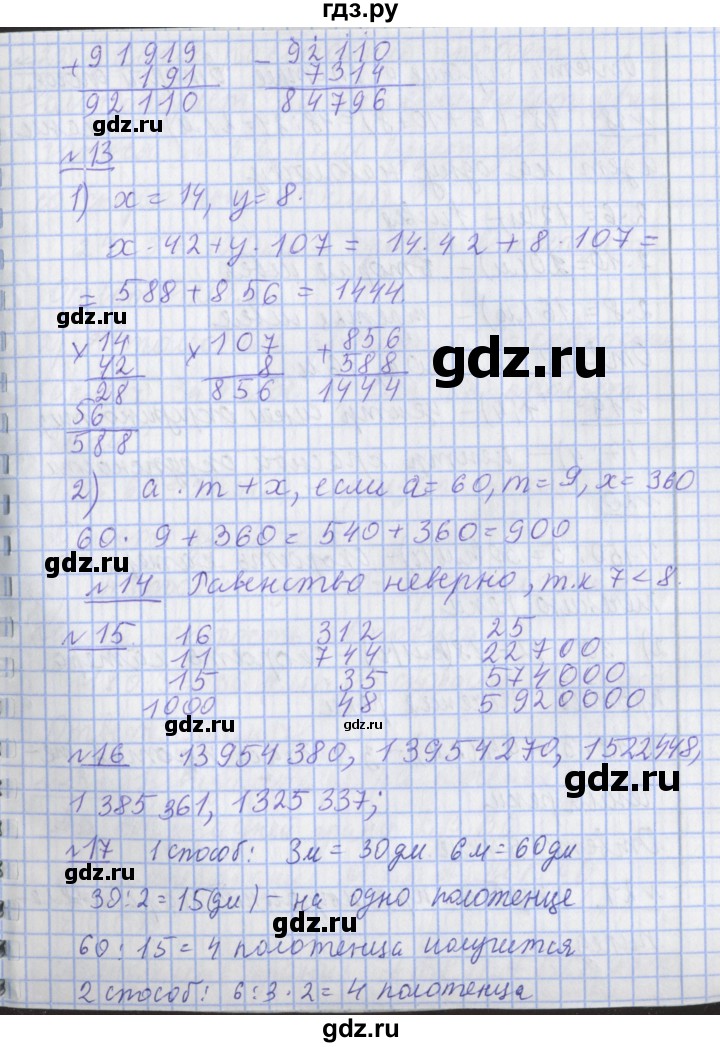 гдз.ру
+ 91919   - 92110
191   7314
92110   84796
gdz.ru
№13
1) x = 14, y = 8.
x · 42 + y · 107 = 14 · 42 + 8 · 107 =
= 588 + 856 = 1444.
gdz.ru
× 14   × 107   + 856
42   8   588
28   856   1444
gdz.ru
56
588
2) a · m + x, если a = 60, m = 9, x = 360
60 · 9 + 360 = 540 + 360 = 900
gdz.ru
№14 Равенство неверно, т.к 7 < 8.
№15 16   312   25
11   744   22700
15   35   574000
1000   48   5920000
gdz.ru
№16 13954380, 13954270, 1522448,
gdz.ru
1385361, 1325337;
№17 1 способ: 3м = 30дм 6м = 60дм
30 : 2 = 15(дм) - на одно полотенце
gdz.ru
60 : 15 = 4 полотенца получится
2 способ: 6 : 3 · 2 = 4 полотенца
gdz.ru